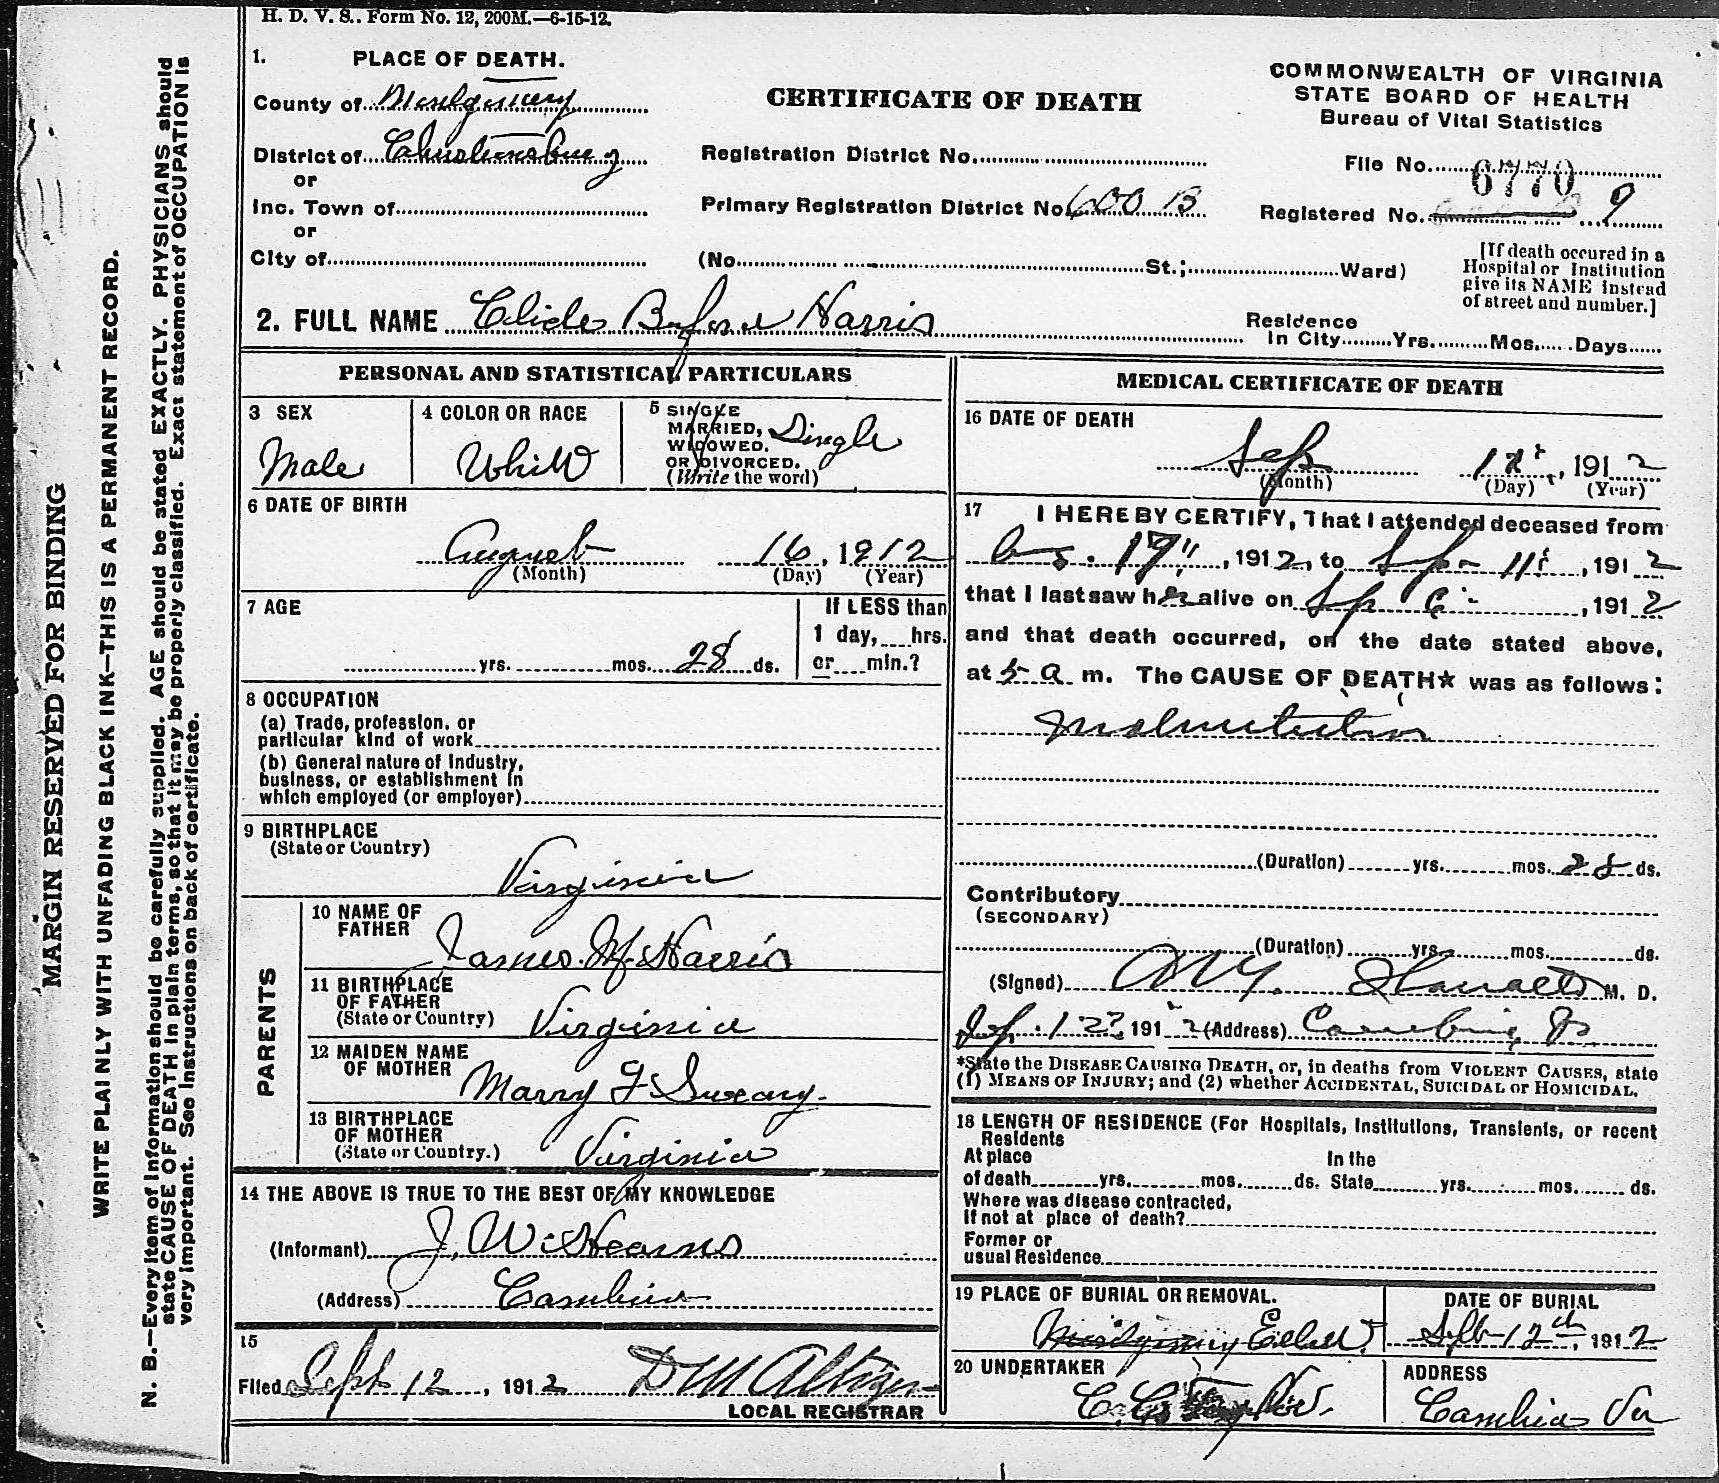 H. D. V. S.. Form No. 12, 200M.—6-15-12.
1. PLACE OF DEATH.
County of Montgomery
District of Christiansburg
or
Inc. Town of
or
City of
CERTIFICATE OF DEATH
Registration District No.
Primary Registration District No. 600 B
(No. St.; Ward)
COMMONWEALTH OF VIRGINIA
STATE BOARD OF HEALTH
Bureau of Vital Statistics
File No. 6770
Registered No. 9
[If death occured in a
Hospital or Institution
give its NAME instead
of street and number.]
2. FULL NAME Buford Harris
Residence
In City Yrs. Mos. Days
PERSONAL AND STATISTICAL PARTICULARS
3 SEX
Male
4 COLOR OR RACE
White
5 SINGLE
MARRIED,
WIDOWED,
OR DIVORCED.
(Write the word)
Single
6 DATE OF BIRTH
August 16, 1912
(Month) (Day) (Year)
7 AGE
yrs. mos. 28 ds.
If LESS than
1 day, hrs.
or min.?
8 OCCUPATION
(a) Trade, profession, or
particular kind of work
(b) General nature of Industry,
business, or establishment in
which employed (or employer)
9 BIRTHPLACE
(State or Country)
Virginia
PARENTS
10 NAME OF
FATHER
James M. Harris
11 BIRTHPLACE
OF FATHER
(State or Country) Virginia
12 MAIDEN NAME
OF MOTHER
Marry F Sweany.
13 BIRTHPLACE
OF MOTHER
(State or Country.) Virginia
14 THE ABOVE IS TRUE TO THE BEST OF MY KNOWLEDGE
(Informant) J. W. Hearns
(Address) Cambria
15
Filed Sept 12, 1912 D M Altizer
LOCAL REGISTRAR
MEDICAL CERTIFICATE OF DEATH
16 DATE OF DEATH
Sep 12, 1912
(Month) (Day) (Year)
17 I HEREBY CERTIFY, That I attended deceased from
Aug. 17", 1912, to Sep 11, 1912
that I last saw h alive on Sep 6, 1912
and that death occurred, on the date stated above,
at 5 a m. The CAUSE OF DEATH★ was as follows:
Malnutrition
(Duration) yrs. mos. 28 ds.
Contributory
(SECONDARY)
(Duration) yrs. mos. ds.
(Signed) M. D.
Sep. 12, 1912 (Address) Cambria, Va.
*State the DISEASE CAUSING DEATH, or, in deaths from VIOLENT CAUSES, state
(1) MEANS OF INJURY; and (2) whether ACCIDENTAL, SUICIDAL or HOMICIDAL.
18 LENGTH OF RESIDENCE (For Hospitals, Institutions, Transients, or recent
Residents
At place In the
of death yrs. mos. ds. State yrs. mos. ds.
Where was disease contracted,
If not at place of death?
Former or
usual Residence
19 PLACE OF BURIAL OR REMOVAL.
DATE OF BURIAL
Sept 12th, 1912
20 UNDERTAKER
ADDRESS
Cambria Va
MARGIN RESERVED FOR BINDING
WRITE PLAINLY WITH UNFADING BLACK INK—THIS IS A PERMANENT RECORD.
N. B.—Every item of information should be carefully supplied. AGE should be stated EXACTLY. PHYSICIANS should
state CAUSE OF DEATH in plain terms, so that it may be properly classified. Exact statement of OCCUPATION is
very important. See instructions on back of certificate.